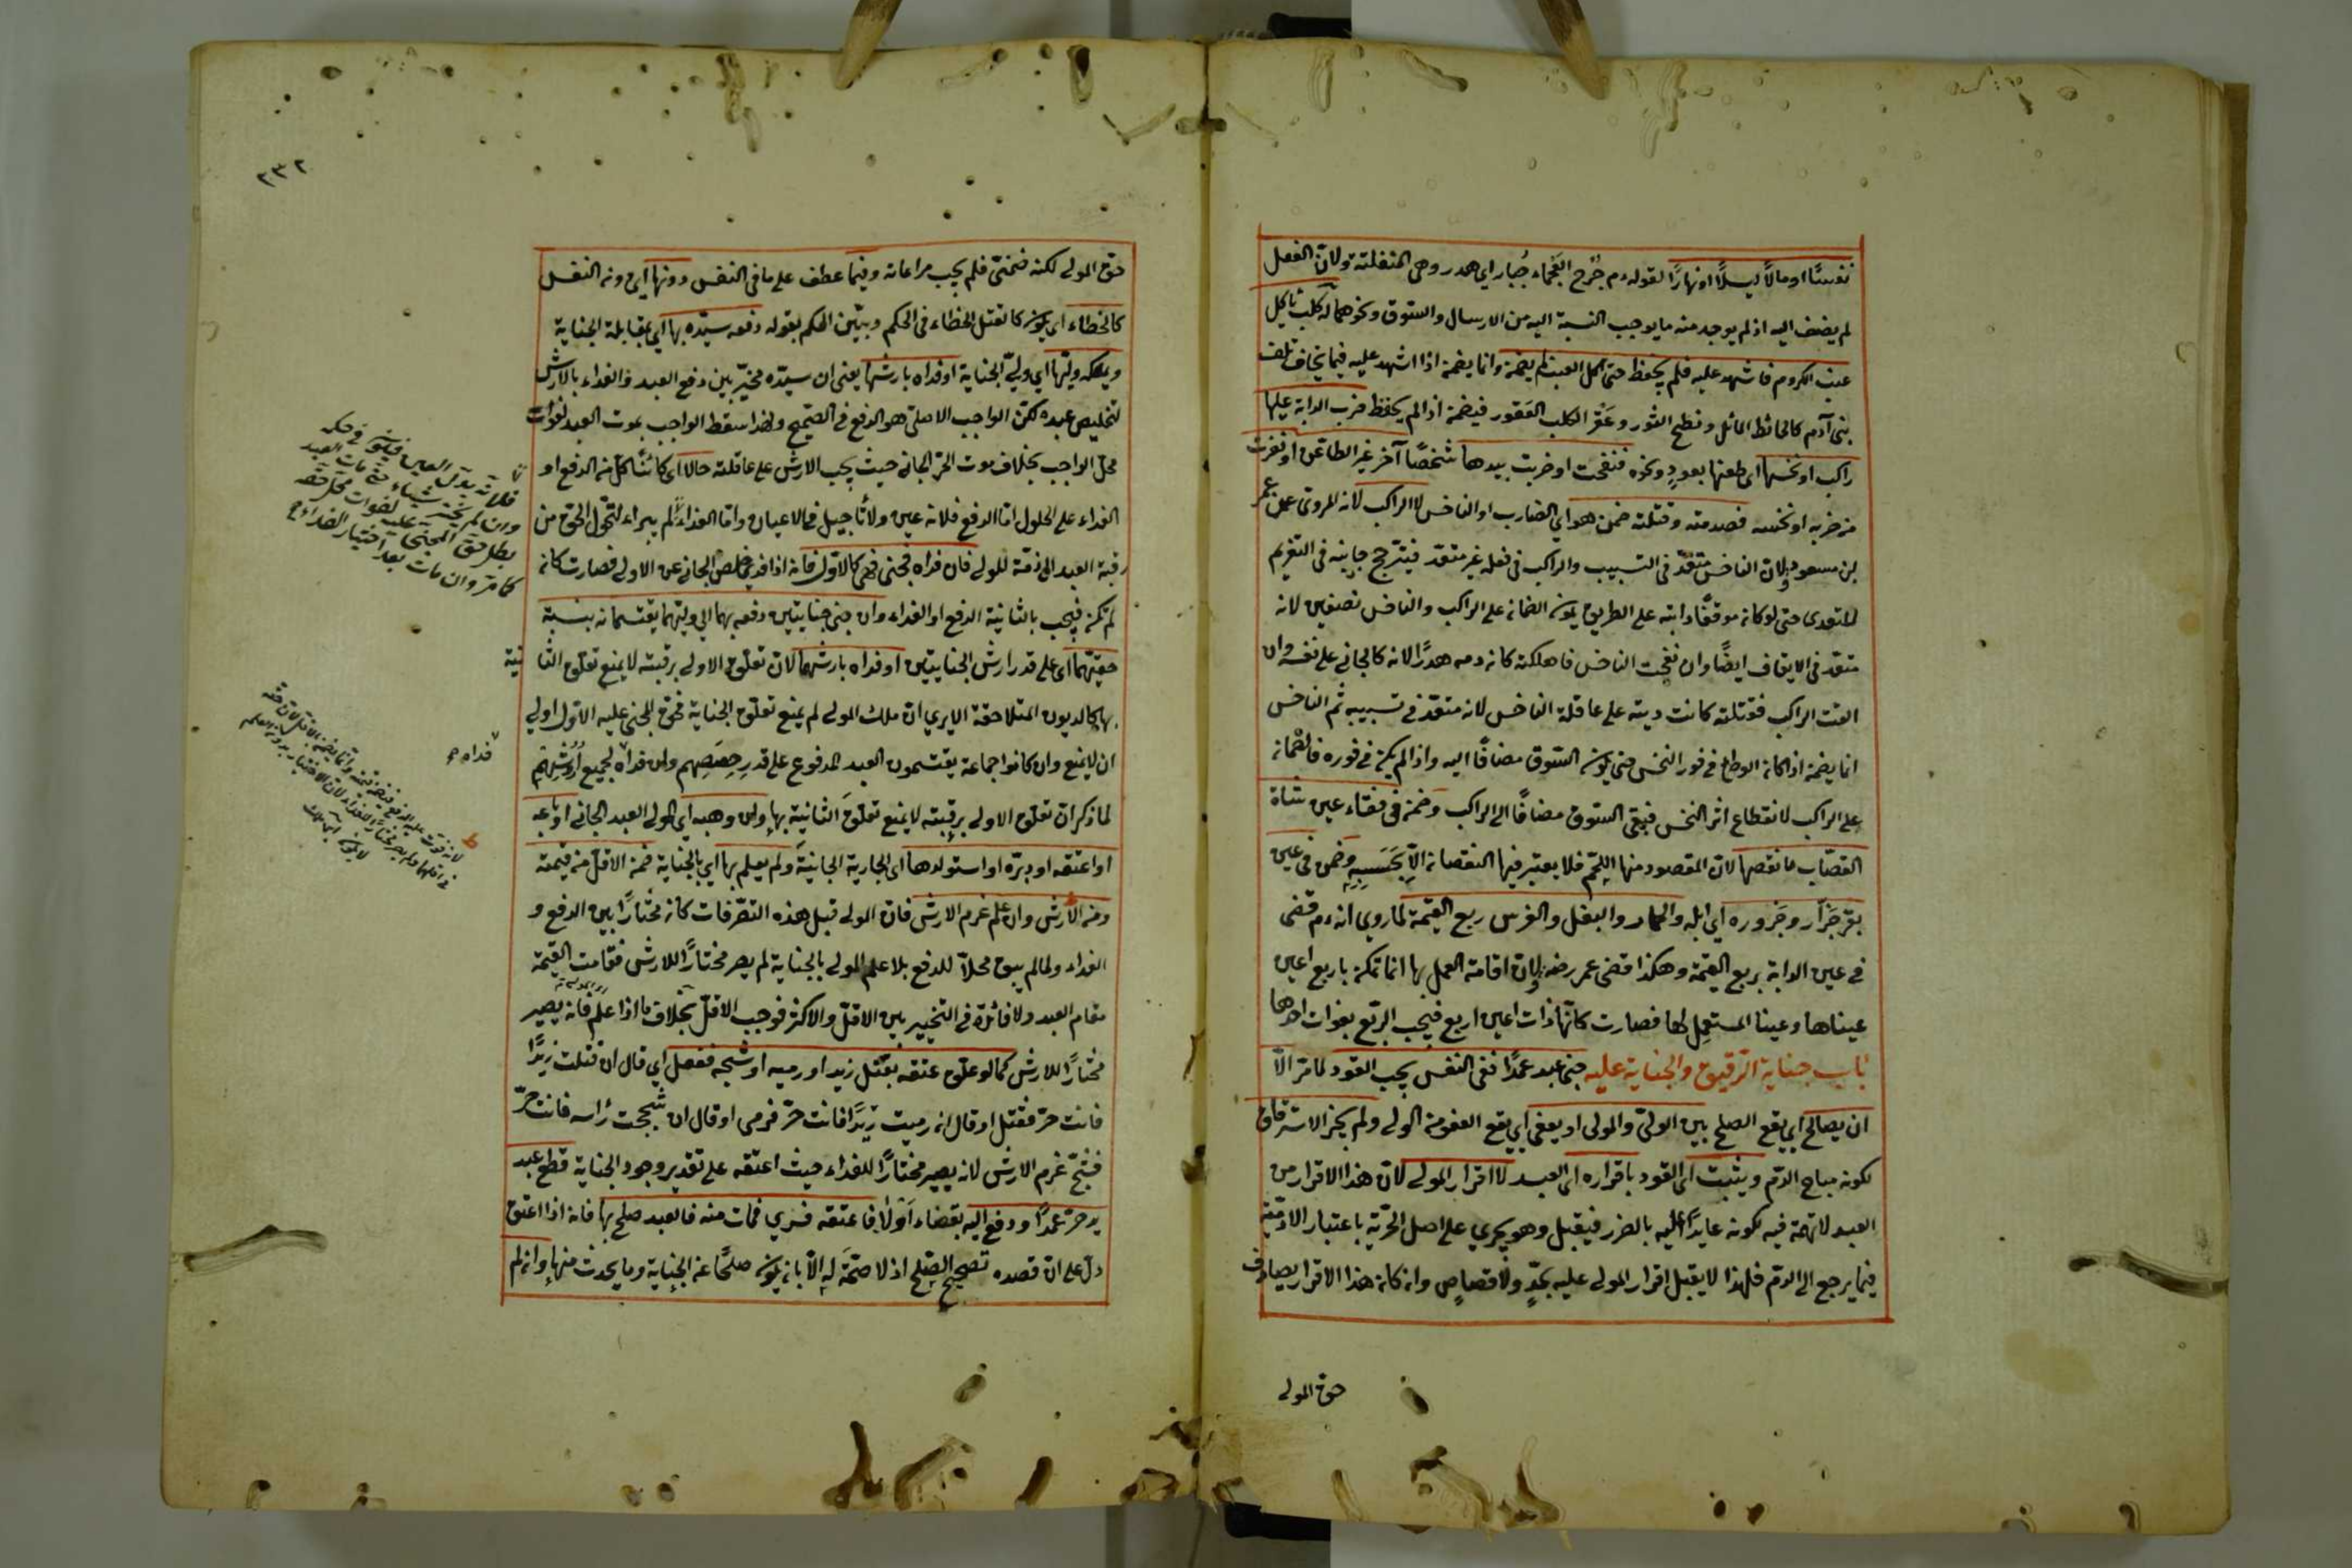 نفسًا او مالًا ليلًا او نهارًا لقوله ءم جُرح العجماء جُبار اي هدر وهى المنفلتة ولان الفعل
لم يضف اليه اذ لم يوجد منه ما يوجب النسبة اليه من الارسال والسوق ونحوهما كلب يأكل
عنب الكروم فاشهد عليه فلم يحفظ حتى اكل العنب لم يضمن وانما يضمن اذا اشهد عليه فيما يخاف تلف
بنى آدم كالحائط المائل ونطح الثور وعَقْر الكلب العَقور فيضمن اذا لم يحفظ ضرب الدابة عليها
راكب او نخسها اى طعنها بعودٍ ونحوه فنفحت او ضربت بيدها شخصًا آخر غير الطاعن او نفرت
من ضربه او نخسه فصدمته وقتلته ضمن هو اي الضارب او الناخس لا الراكب لانه المروى عن عمر
بن مسعود ولان الناخس متعدّ فى التسبيب والراكب فى فعله غير متعد فيترجح جانبه فى التغريم
للتعدى حتى لو كان موقفًا دابته على الطريق يكون الضمان على الراكب والناخس نصفين لانه
متعد فى الايقاف ايضًا وان نفحت الناخس فاهلكته كان دمه هدرًا لانه كالجانى على نفسه وان
القت الراكب فقتلته كانت ديته على عاقلة الناخس لانه متعدّ فى تسبيبه ثم الناخس
انما يضمن اذا كان الوطئ فى فور النخس حتى يكون السوق مضافًا اليه واذا لم يكن فى فوره فالضمان
على الراكب لانقطاع اثر النخس فبقى السوق مضافًا الى الراكب وضمن فى فقاء عين شاة
القصّاب ما نقصها لان المقصود منها اللحم فلا يعتبر فيها النقصان الا بحسبه وضمن فى عين
بقر جَزّار وجَزوره اي ابله والحمار والبغل والفرس ربع القيمة لما روي انه ءم قضى
فى عين الدابة بربع القيمة وهكذا قضى عمر رضه ولان اقامة العمل بها انما تمكن باربع اعين
عيناها وعينا المستعمِل لها فصارت كانّها ذات اعين اربع فيجب الربع بفوات احدها
باب جناية الرقيق والجناية عليه جنى عبد عمدًا ففى النفس يجب القود لما مرّ الّا
ان يصالح اي يقع الصلح بين الولىّ والمولى او يعفى اي يقع العفو من الولى ولم يجز الاسترقاق
لكونه مباح الدم ويثبت اى القود باقراره اى العبد لا اقرار المولى لان هذا الاقرار من
العبد لا تهمة فيه لكونه عايدًا اليه بالضرر فيقبل وهو يجري على اصل الحرّية باعتبار الادميّة
فيما يرجع الى الدم فلهذا لا يقبل اقرار المولى عليه بحدٍّ ولا قصاصٍ وان كان هذا الاقرار يصادف
حق المولى
٢٣٢
حق المولى لكنه ضمنىّ فلم يجب مراعاته وفيما عطف على ما فى النفس دونها اي دون النفس
كالخطاء اي يكون كالقتل الخطاء فى الحكم وبيّن الحكم بقوله دفعه سيّده بها اي بمقابلة الجناية
ويملكه وليّها اي وليّ الجناية او فداه بارشها يعنى ان سيّده مخيّر بين دفع العبد والفداء بالارش
لتخليص عبده لكن الواجب الاصلى هو الدفع فى الصحيح ولهذا سقط الواجب بموت العبد لفوات
محل الواجب بخلاف موت الحرّ الجانى حيث يجب الارش على عاقلته حالًا اى كائنًا كل من الدفع او
الفداء على الحلول اما الدفع فلانه عين ولا تأجيل فى الاعيان واما الفداء لم يبراء لتحوّل الحق من
رقبة العبد الى ذمّة المولى فان فداه فجنى فهى كالاولى فانه اذا فدى خلص الجانى عن الاولى فصارت كان
لم تكن فيجب بالثانية الدفع او الفداء وان جنى جنايتين دفعه بهما الى وليّهما يقتسمانه بنسبة
حقيّهما اى على قدر ارش الجنايتين او فداه بارشهما لان تعلّق الاولى برقبته لا يمنع تعلّق الثا نية
بها كالديون المتلاحقة الا يرى ان ملك المولى لم يمنع تعلّق الجناية فحق المجنى عليه الاول اولى
ان لا يمنع وان كانوا جماعة يقتسمون العبد المدفوع على قدر حِصَصِهم وان فداه لجميع اُرُوشِهم
فداه صح
لما ذكر ان تعلّق الاولى برقبته لا يمنع تعلّق الثانية بها وان وهبه اى المولى العبد الجانى او باعه
او اعتقه او دبّره او استولدها اى الجارية الجانية ولم يعلم بها اي بالجناية ضمن الاقل من قيمته
ومن الارش وان علم غرم الارش فان المولى قبل هذه التصرّفات كان مختارًا بين الدفع و
الفداء ولما لم يبق محلّا للدفع بلا علم المولى بالجناية لم يصر مختارًا للارش فقامت القيمة
مقام العبد ولا فائدة فى التخيير بين الاقلّ والاكثر فوجب الاقلّ بخلاف ما اذا علم فانه يصير
مختارًا للارش كما لو علّق عتقه بقتل زيد او رميه او شجه ففعل اي قال ان قتلت زيدًا
فانت حرّ فقتل او قال ان رميت زيدًا فانت حرّ فرمى او قال ان شججت رأسه فانت حرّ
فشجّ غرم الارش لانه يصير مختارًا للفداء حيث اعتقه على تقدير وجود الجناية قطع عبد
يد حرّ عمدًا ودفع اليه بقضاء او لا فاعتقه فسري فمات منه فالعبد صلح بها فانه اذا اعتق
دلّ على ان قصده تصحيح الصلح اذ لا صحّة له الّا بان يكون صلحًا عن الجناية وما يحدث منها وان لم
وان لم يختر شيئاء حتى مات العبد
بطل حق المجنى عليه لفوات محل حقه
كما مرّ وان مات بعد اختيار الفداء صح